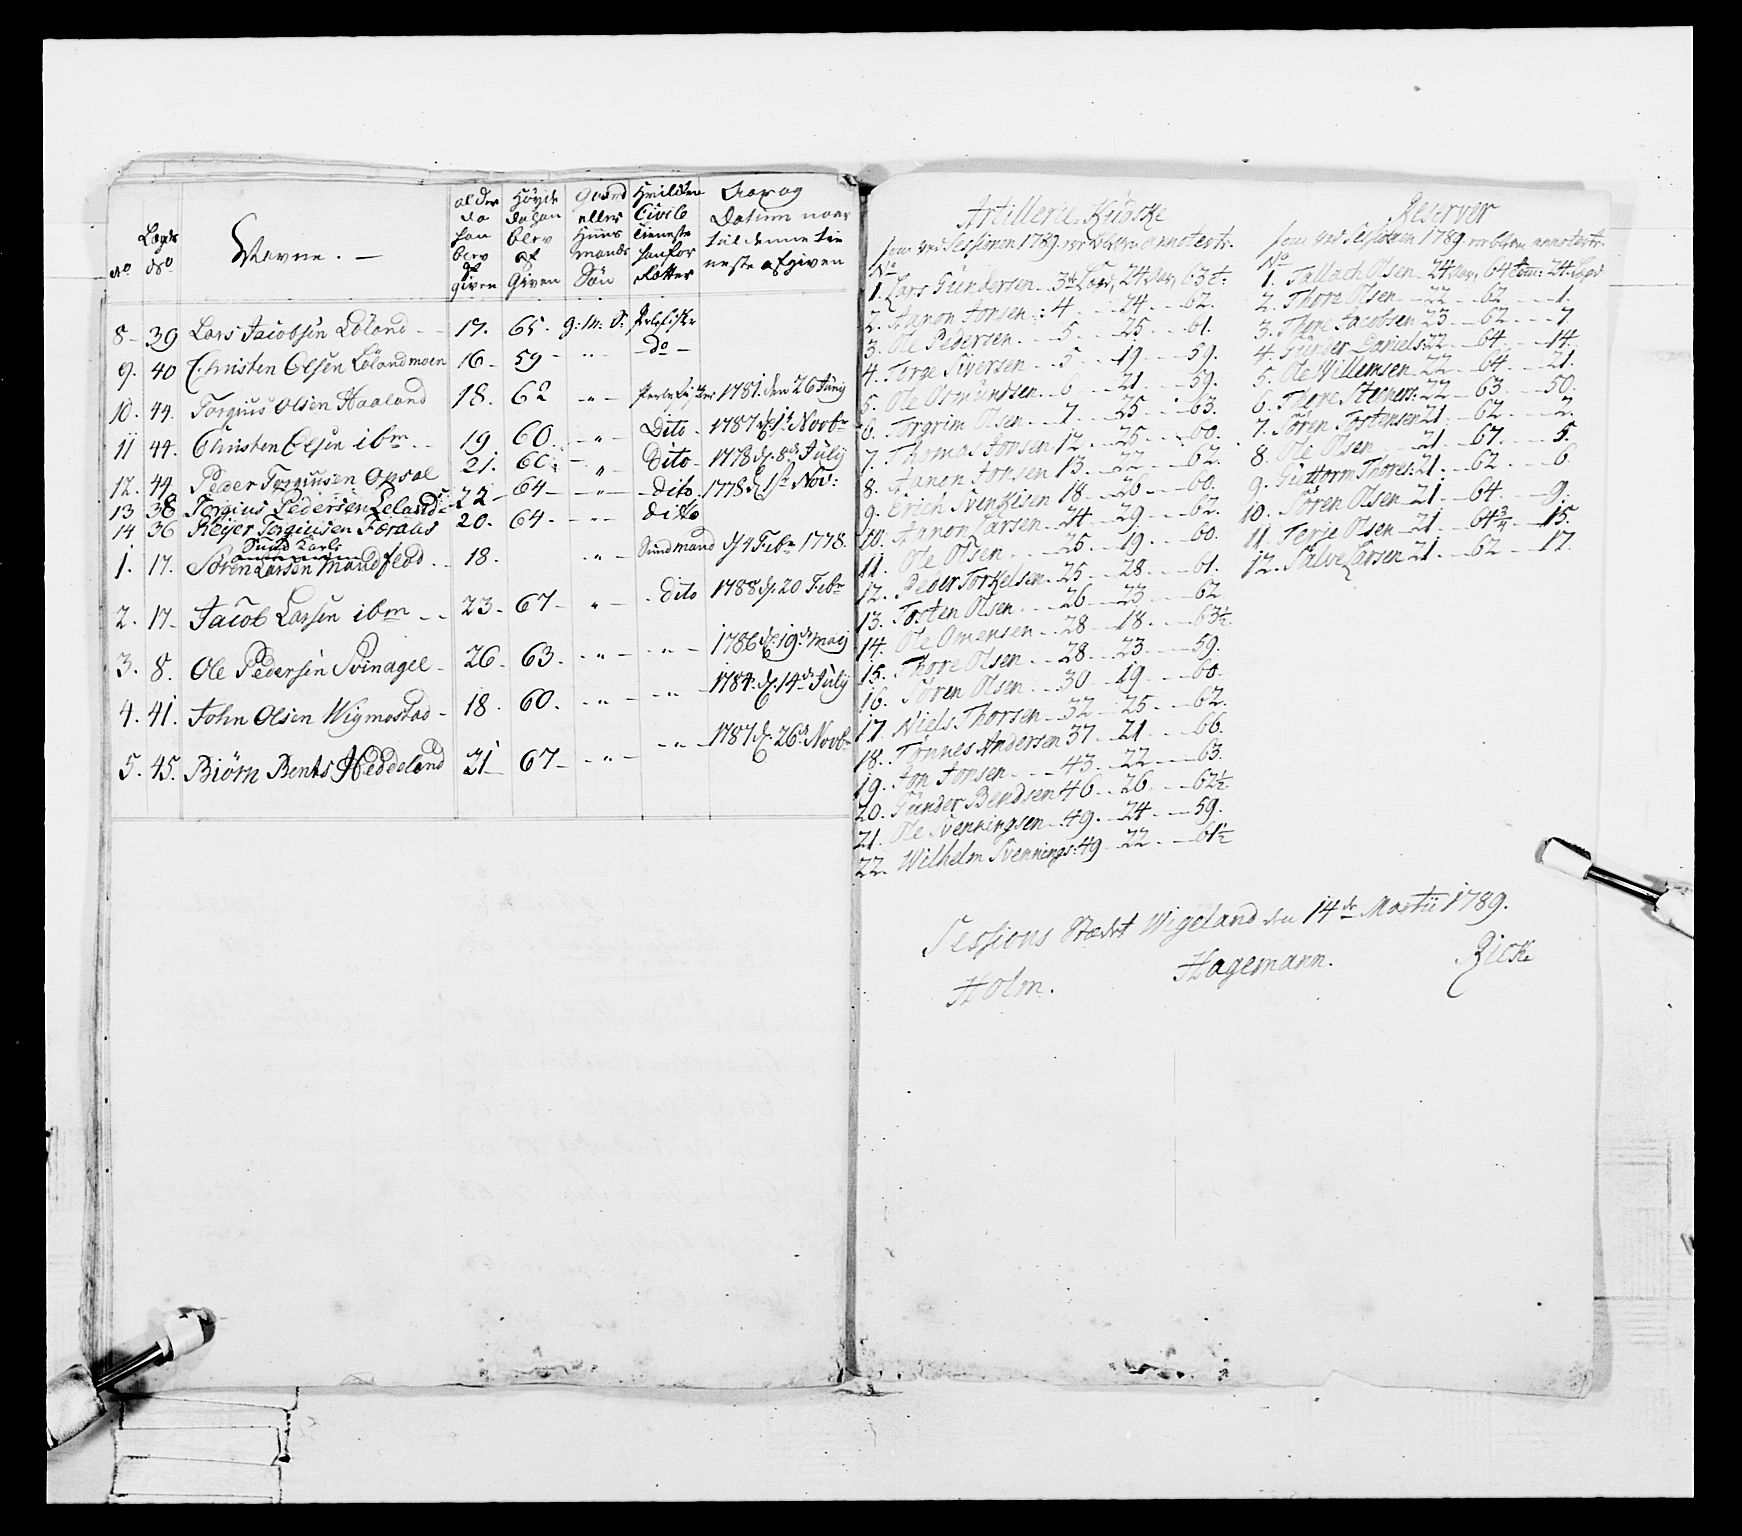 No
Lægds No
Navne. —
alder da han blev af given
Høyde da han blev af Given
Gaard eller Huus mands Søn
Hvilcken Civile Tieneste han for Retter
Aar og Datum naar til denne tie neste afgiven
8 – 39 Lars Jacobsen Løland – – 17. 65. g: m: S: Perlefisker
9. 40 Christen Olsen Lølandmoen 16 – 59 – – „ – – do –
10. 44. Torgius Olsen Haaland 18. 62 – „ – Perlefisker 1781. den 26 Junij
11 44. Christen Olsen ibm – – 19 60. – „ – Dito – 1787 d. 1t Novbr
12. 44. Peder Torgiusen Opsal 21. 60 – „ – Dito – 1778 d. 8de July
13 38 Torgius Pedersen Leland 22 – 64 – – „ – – dito. 1778 d. 1st Nov:
14 36 Reijer Torgiusen Føraas 20. 64 – – „ – dito
Sund Karle
1. 17. Sören Larsen Mandflod – – 18. – „ – Sundmand d. 4 Febr 1778.
2. 17 – Jacob Larsen ibm – – 23 – 67 – – „ – – dito 1788 d. 20 Febr
3. 8. Ole Pedersen Svinagel – 26 – 63 – – „ – – „ – 1786 d. 19de Maij
4. 41. John Olsen Wigmostad – 18. 60. – „ – – „ – 1784 d. 14de July
5. 45. Biörn Bents Heddeland 31 – 67 – – „ – – „ – 1787 d. 26de Novbr
Artillerie-Kudske
som ved Sessionen 1789 er bleven annoteret.
No
1. Lars Gundersen – 3de Lægd, 24 Aar, 63 t:
2. Aanon Jonsen – : 4 – – 24 – – 62.
3. Ole Pedersen – – 5 – – 25 – – 61.
4. Torge Siversen – – 5 – – 19 – – 59.
5. Ole Osmundsen – – 6 – – 21 – – 59.
6. Torgrim Olsen – – 7 – – 25 – – 63.
7. Thomas Jonsen 12 – – 25 – – 60.
8. Aanon Jonsen 13 – – 22 – – 62.
9. Erich Svenkisen 18 – – 26 – – 60.
10. Aanon Larsen – 24 – – 29 – – 62.
11. Ole Olsen – – 25 – – 19 – – 60.
12. Peder Torkelsen – 25 – – 28 – – 61.
13. Tosten Olsen – – 26 – – 23 – – 62
14. Ole Omensen – – 28 – – 18 – – 63½
15. Thore Olsen – – 28 – – 23 – – 59.
16. Sören Olsen – – 30 – – 19 – – 60.
17 Niels Thorsen – 32 – – 25 – – 62.
18. Tönnes Andersen 37 – – 21 – – 66.
19. Jon Jonsen – – – 43. – 22 – – 63.
20. Gunder Bendsen 46 – – 26 – – 62½
21. Ole Svenningsen – 49. – 24 – – 59.
22. Wilhelm Svennings: 49 – – 22. – – 61½
Reserver
som ved Sessionen 1789 er bleven annoteret.
No
1. Tallach Olsen – 24 Aar, 64 tom: 24 Lægd
2. Thore Olsen – – 22 – – 62 – – – 1.
3. Thore Jacobsen 23 – – 62 – – – 7
4. Gunder Daniels: 22 – – 64 – – – 14.
5. Ole Willemsen – 22 – – 64 – – – 21.
6. Thore Steners: 22 – – 63 – – – 50.
7. Sören Tostensen 21 – – 62 – – – 2.
8. Ole Olsen – – 21 – – 67 – – – 5.
9. Guttorm Thores: 21. – – 62 – – – 6
10. Sören Olsen – 21 – – 64 – – – 9.
11. Terje Olsen – 21 – – 64¾ – – 15.
12. Salve Larsen 21 – – 62 – – – 17.
Sessions Stædet Wigeland den 14de Martii 1789.
Holm. Hagemann. Rick